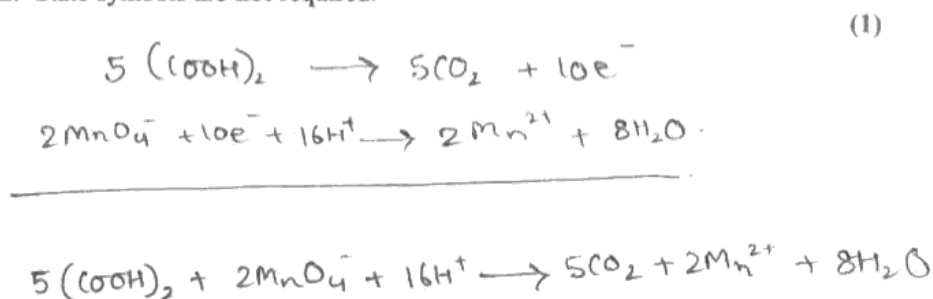 (1)
5 (COOH)₂ ⟶ 5CO₂ + 10e⁻
2MnO₄⁻ + 10e⁻ + 16H⁺ ⟶ 2Mn²⁺ + 8H₂O.
5(COOH)₂ + 2MnO₄⁻ + 16H⁺ ⟶ 5CO₂ + 2Mn²⁺ + 8H₂O